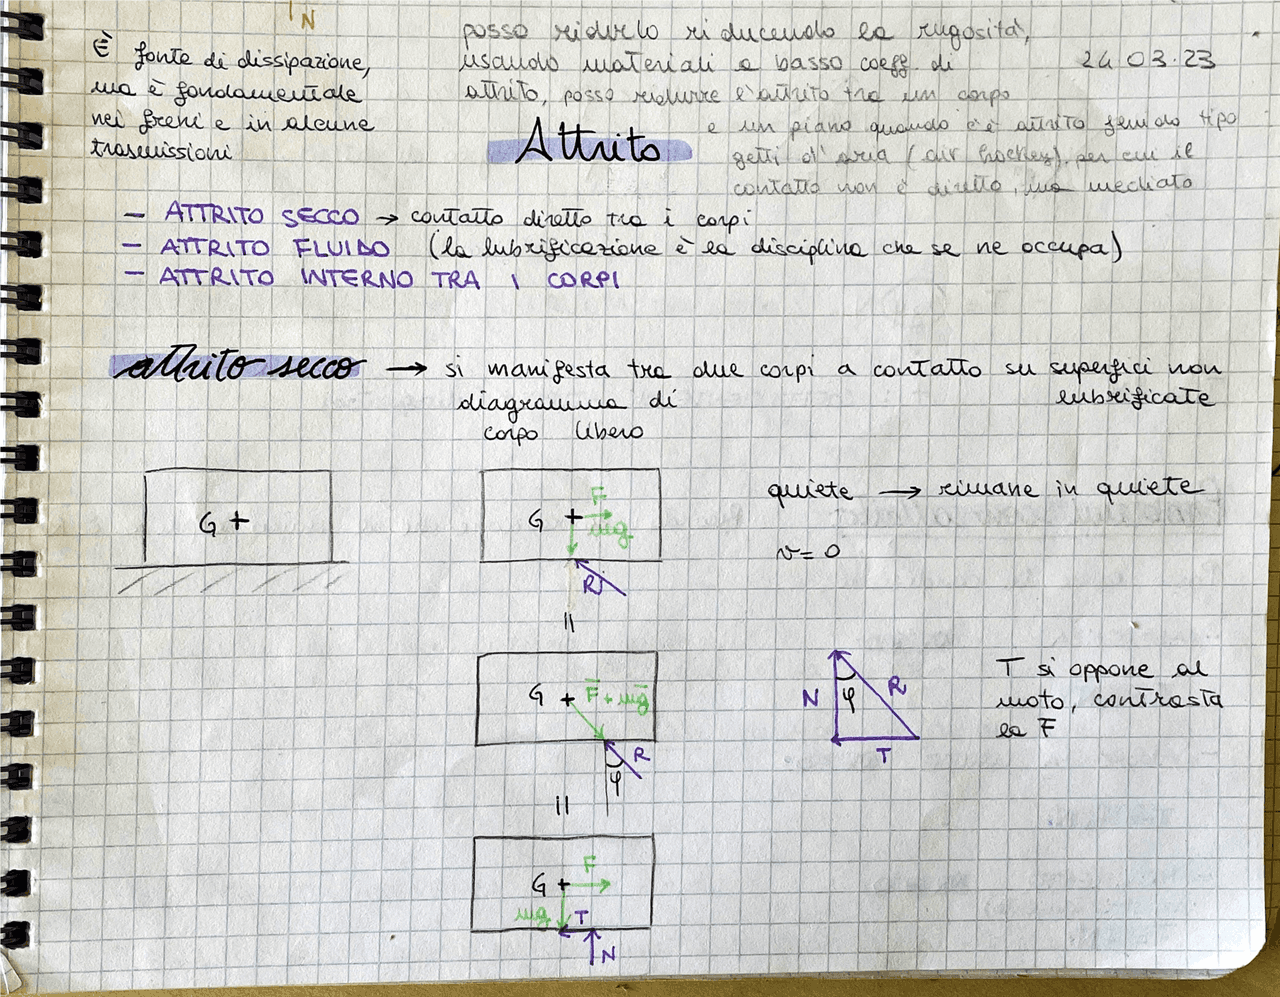 N
È fonte di dissipazione,
ma è fondamentale
nei freni e in alcune
trasmissioni
posso ridurlo riducendo la rugosità,
usando materiali a basso coeff. di
attrito, posso ridurre l'attrito tra un corpo
e un piano quando c'è attrito fluido tipo
getti d'aria (air hockey), per cui il
contatto non è diretto, ma mediato
24 03.23
Attrito
- ATTRITO SECCO → contatto diretto tra i corpi
- ATTRITO FLUIDO (la lubrificazione è la disciplina che se ne occupa)
- ATTRITO INTERNO TRA I CORPI
attrito secco → si manifesta tra due corpi a contatto su superfici non
lubrificate
diagramma di
corpo libero
G +
G + F
mg
R
quiete → rimane in quiete
v = 0
=
G + F + mg
R
φ
N φ R
T
T si oppone al
moto, contrasta
la F
=
G + F
mg T
N